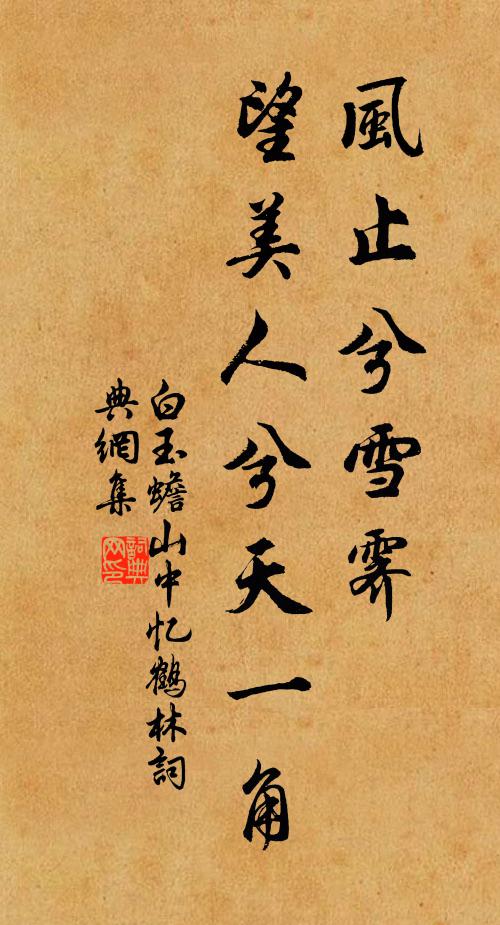 風止兮雪霽
望美人兮天一角
白玉蟾山中忆鶴林詞
典網集
詞典
网印